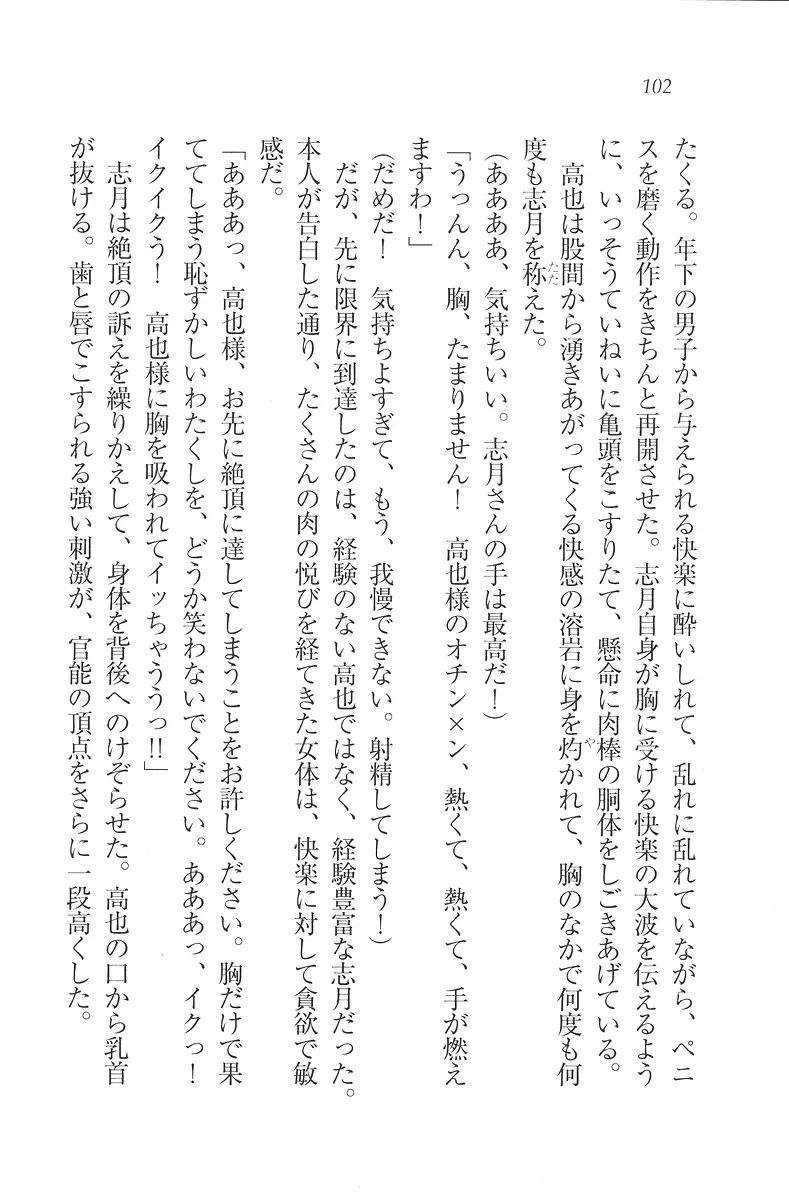 102
たくる。年下の男子から与えられる快楽に酔いしれて、乱れに乱れていながら、ペニ
スを磨く動作をきちんと再開させた。志月自身が胸に受ける快楽の大波を伝えるよう
に、いっそうていねいに亀頭をこすりたて、懸命に肉棒の胴体をしごきあげている。
高也は股間から湧きあがってくる快感の溶岩に身を灼かれて、胸のなかで何度も何
度も志月を称えた。
(ああああ、気持ちいい。志月さんの手は最高だ!)
「うっんん、胸、たまりません! 高也様のオチン×ン、熱くて、熱くて、手が燃え
ますわ!」
(だめだ! 気持ちよすぎて、もう、我慢できない。射精してしまう!)
だが、先に限界に到達したのは、経験のない高也ではなく、経験豊富な志月だった。
本人が告白した通り、たくさんの肉の悦びを経てきた女体は、快楽に対して貪欲で敏
感だ。
「あああっ、高也様、お先に絶頂に達してしまうことをお許しください。胸だけで果
ててしまう恥ずかしいわたくしを、どうか笑わないでください。あああっ、イクっ!
イクイクう! 高也様に胸を吸われてイッちゃううっ!!」
志月は絶頂の訴えを繰りかえして、身体を背後へのけぞらせた。高也の口から乳首
が抜ける。歯と唇でこすられる強い刺激が、官能の頂点をさらに一段高くした。